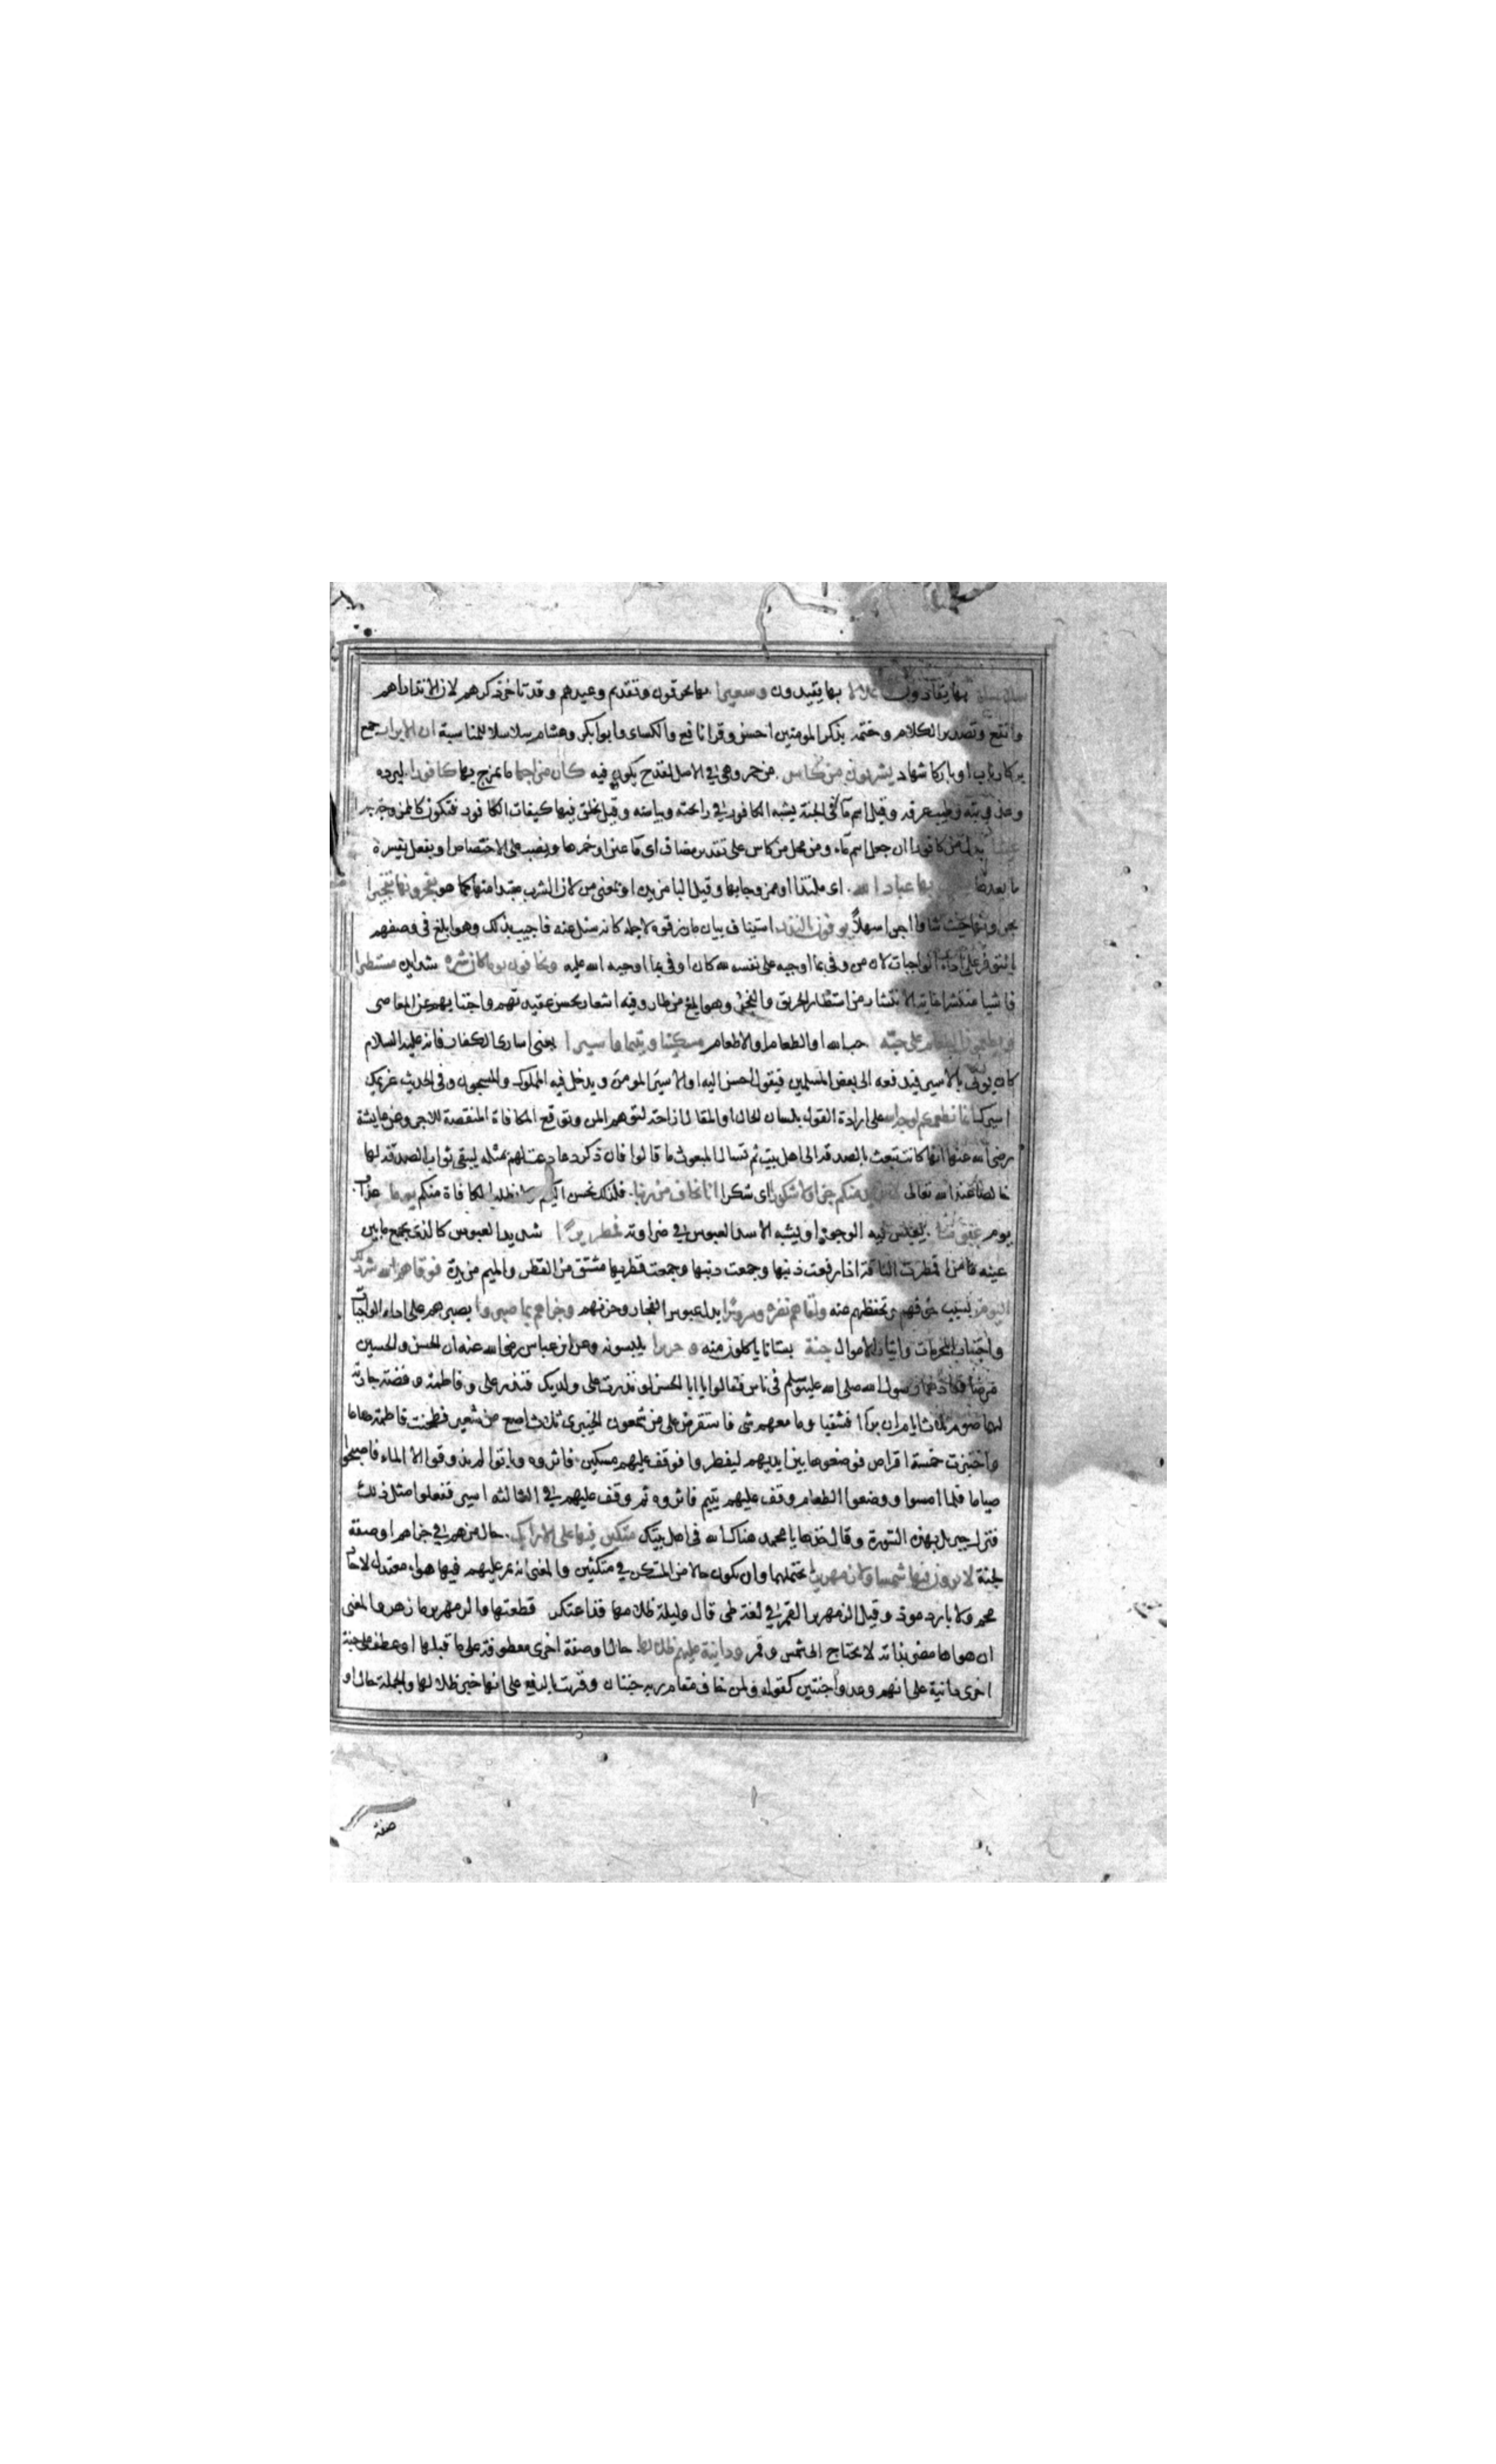 سلاسلا بها يقادون واغلالا بها يقيدون وسعيرا بها يحرقون وتقديم وعيدهم وقد تاخر ذكرهم لان الانذار اهم
وانفع وتصدير الكلام وختمه بذكر المومنين احسن وقرا نافع والكساى وابو بكر وهشام سلاسلا للمناسبة ان الابرار جمع
بر كارباب او بار كاشهاد يشربون من كاس من خمر وهى في الاصل لقدح يكون فيه كان مزاجها ما يمزج بها كافورا لبرده
وعذوبته وطيب عرفه وقيل اسم ماء في الجنة يشبه الكافور في رائحته وبياضه وقيل يخلق فيها كيفيات الكافور فتكون كالممزوجة به
عينا بدل من كافورا ان جعل اسم ماء ومن محل من كاس على تقدير مضاف اى ماء عين او خمرها ونصب على الاختصاص او بفعل يفسره
ما بعدها يشرب بها عباد الله اى ملتذا او ممزوجا بها وقيل البا مزيدة او بمعنى من لان الشرب مبتدا منها كما هو يفجرونها تفجيرا
يجرونها حيث شاوا اجرا سهلا يوفون بالنذر استيناف ببيان ما رزقوه لاجله كانه سئل عنه فاجيب بذلك وهو ابلغ في وصفهم
بالتوفر على اداء الواجبات لان من وفى بما اوجبه على نفسه لله كان اوفى بما اوجبه الله عليه ويخافون يوما كان شره شدايده مستطيرا
فاشيا منتشرا غاية الانتشار من استطار الحريق والفجر وهو ابلغ من طار وفيه اشعار بحسن عقيدتهم واجتنابهم عن المعاصى
ويطعمون الطعام على حبه حب الله او الطعام او الاطعام مسكينا ويتيما واسيرا يعنى اسارى الكفار فانه عليه السلام
كان يوتى بالاسير فيدفعه الى بعض المسلمين فيقول احسن اليه او الاسير المومن ويدخل فيه المملوك والمسجون وفي الحديث غريمك
اسيرك انما نطعمكم لوجه الله على ارادة القول بلسان الحال او المقال ازاحة لتوهم المن وتوقع المكافاة المنقصة للاجر وعن عايشة
رضى الله عنها انها كانت تبعث بالصدقة الى اهل بيت ثم تسال المبعوث ما قالوا فان ذكر دعاء دعت لهم بمثله ليبقى ثواب الصدقة لها
خالصا عند الله تعالى لا نريد منكم جزاء ولا شكورا اى شكرا انا نخاف من ربنا فلذلك نحسن اليكم ولا نطلب المكافاة منكم يوما عذاب
يوم عبوسا يعبس فيه الوجوه او يشبه الاسد العبوس في ضراوته قمطريرا شديد العبوس كالذى يجمع ما بين
عينيه من اقمطرت الناقة اذا رفعت ذنبها وجمعت قطريها مشتق من القطر والميم مزيدة فوقاهم الله شر ذلك
اليوم بسبب خوفهم وتحفظهم عنه ولقاهم نضرة وسرورا بدل عبوس الفجار وحزنهم وجزاهم بما صبروا بصبرهم على اداء الواجبات
واجتناب المحرمات وايثار الاموال جنة بستانا ياكلون منه وحريرا يلبسونه وعن ابن عباس رضى الله عنه ان الحسن والحسين
مرضا فعادهما رسول الله صلى الله عليه وسلم في ناس فقالوا يا ابا الحسن لو نذرت على ولديك فنذر على وفاطمة وفضة جارية
لهما صوم ثلاث ايام ان برا فشفيا وما معهم شى فاستقرض على من شمعون الخيبرى ثلاث اصع من شعير فطحنت فاطمة صاعا
واختبزت خمسة اقراص فوضعوها بين ايديهم ليفطروا فوقف عليهم مسكين فاثروه وباتوا لم يذوقوا الا الماء فاصبحوا
صياما فلما امسوا ووضعوا الطعام وقف عليهم يتيم فاثروه ثم وقف عليهم في الثالثة اسير ففعلوا مثل ذلك
فنزل جبريل بهذه السورة وقال خذها يا محمد هناك الله في اهل بيتك متكين فيها على الارايك حال من هم في جزاهم او صفة
لجنة لا يرون فيها شمسا ولا زمهريرا يحتملهما وان يكون حالا من المستكن في متكئين والمعنى انه يمر عليهم فيها هواء معتدل لا حار
محم ولا بارد موذ وقيل الزمهرير القمر في لغة طى قال وليلة ظلامها قد اعتكر قطعتها والزمهرير ما زهر والمعنى
ان هواها مضى بذاته لا يحتاج الى شمس وقمر ودانية عليهم ظلالها حال او صفة اخرى معطوفة على ما قبلها او عطف على جنة
اخرى دانية على انهم وعدوا جنتين كقوله ولمن خاف مقام ربه جنتان وقريت بالرفع على انها خبر ظلالها والجملة حال او
صفة